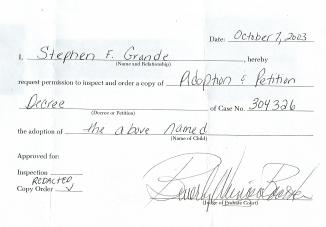 Date: October 7, 2003
I, Stephen F. Grande, hereby
(Name and Relationship)
request permission to inspect and order a copy of Adoption & Petition
Decree of Case No. 304326
(Decree or Petition)
the adoption of the above named
(Name of Child)
Approved for:
Inspection
REDACTED
Copy Order √
(Judge of Probate Court)